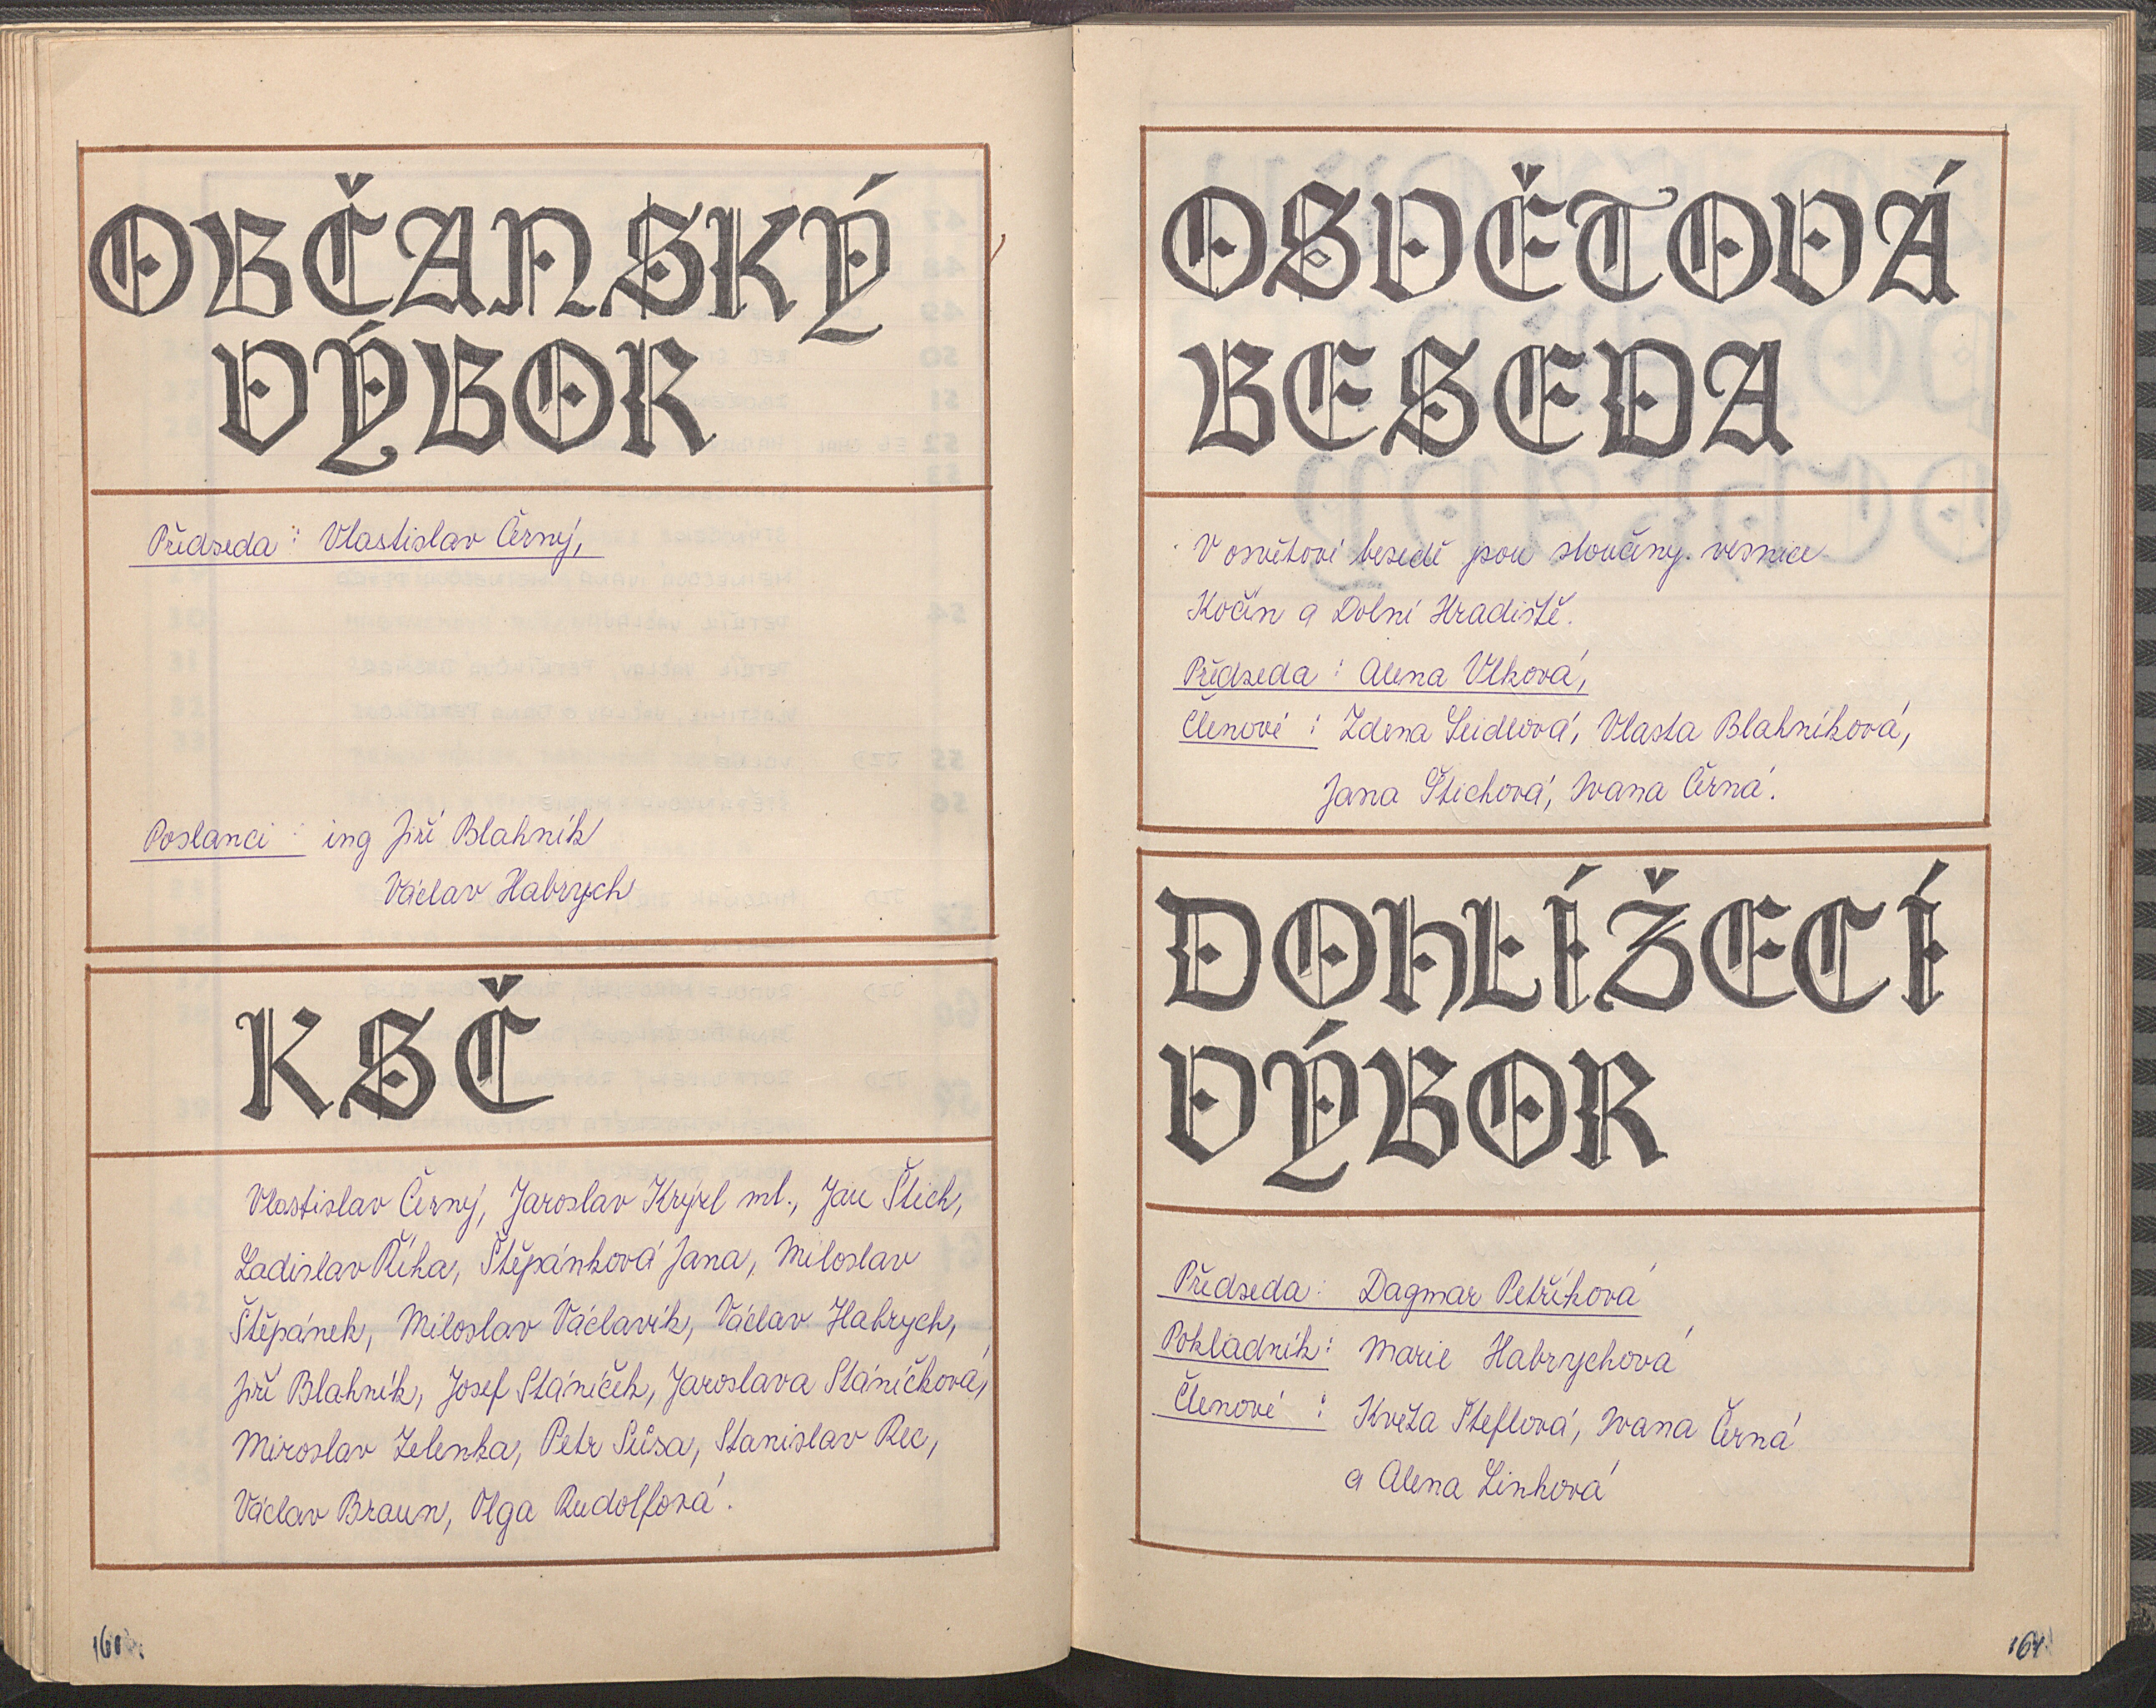 OBČANSKÝ
VÝBOR
Předseda : Vlastislav Černý,
Poslanci : ing Jiří Blahník
Václav Habrych
KSČ
Vlastislav Černý, Jaroslav Krýzl ml., Jan Štich,
Ladislav Říha, Štěpánková Jana, Miloslav
Štěpánek, Miloslav Václavík, Václav Habrych,
Jiří Blahník, Josef Stáníček, Jaroslava Stáníčková,
Miroslav Zelenka, Petr Susa, Stanislav Rec,
Václav Braun, Olga Rudolfová.
160.
OSVĚTOVÁ
BESEDA
V osvětové besedě jsou sloučeny vesnice
Kočín a Dolní Hradiště.
Předseda : Alena Vlková,
Členové : Zdena Seidlová, Vlasta Blahníková,
Jana Štichová, Ivana Černá.
DOHLÍŽECÍ
VÝBOR
Předseda : Dagmar Petříková
Pokladník : Marie Habrychová
Členové : Květa Šteflová, Ivana Černá
a Alena Linhová
161